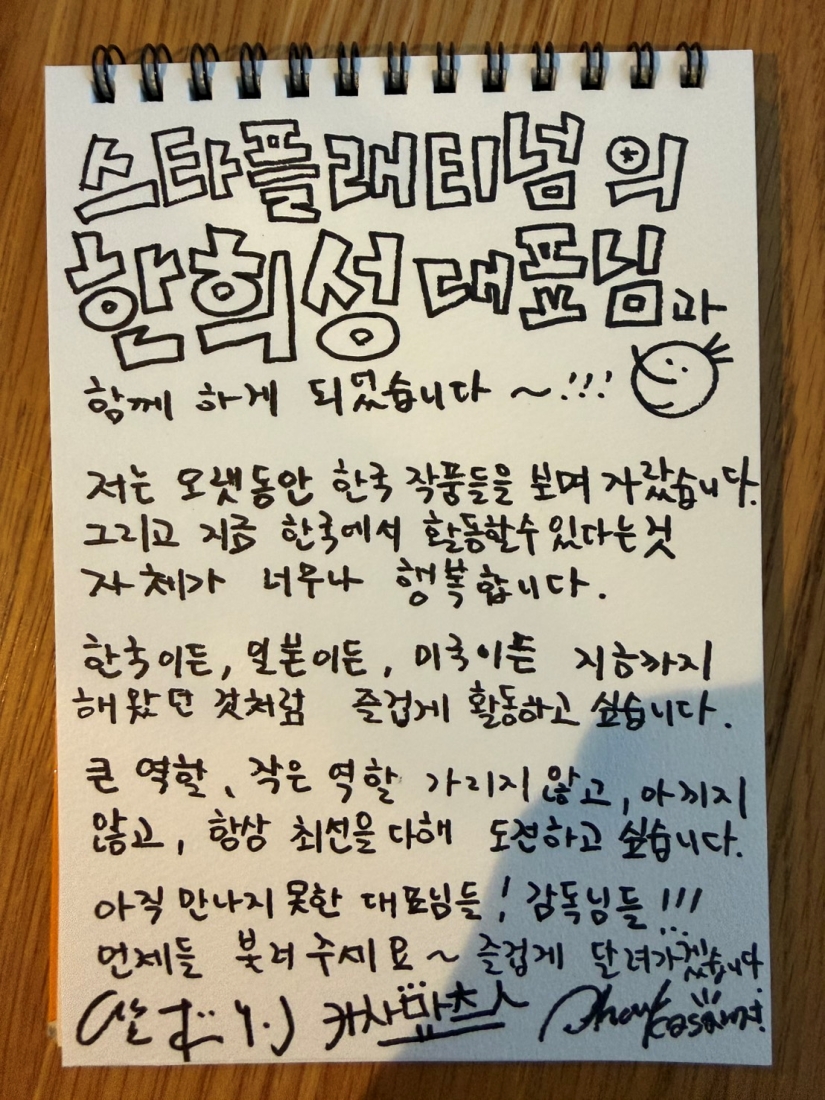 스타플래티넘의
한희성 대표님과
함께 하게 되었습니다 ~!!!
저는 오랫동안 한국 작품들을 보며 자랐습니다.
그리고 지금 한국에서 활동할수 있다는것
자체가 너무나 행복합니다.
한국이든, 일본이든, 미국이든 지금까지
해왔던 것처럼 즐겁게 활동하고 싶습니다.
큰 역할, 작은 역할 가리지 않고, 아끼지
않고, 항상 최선을 다해 도전하고 싶습니다.
아직 만나지 못한 대표님들! 감독님들!!!
언제든 불러주세요~ 즐겁게 달려가겠습니다.